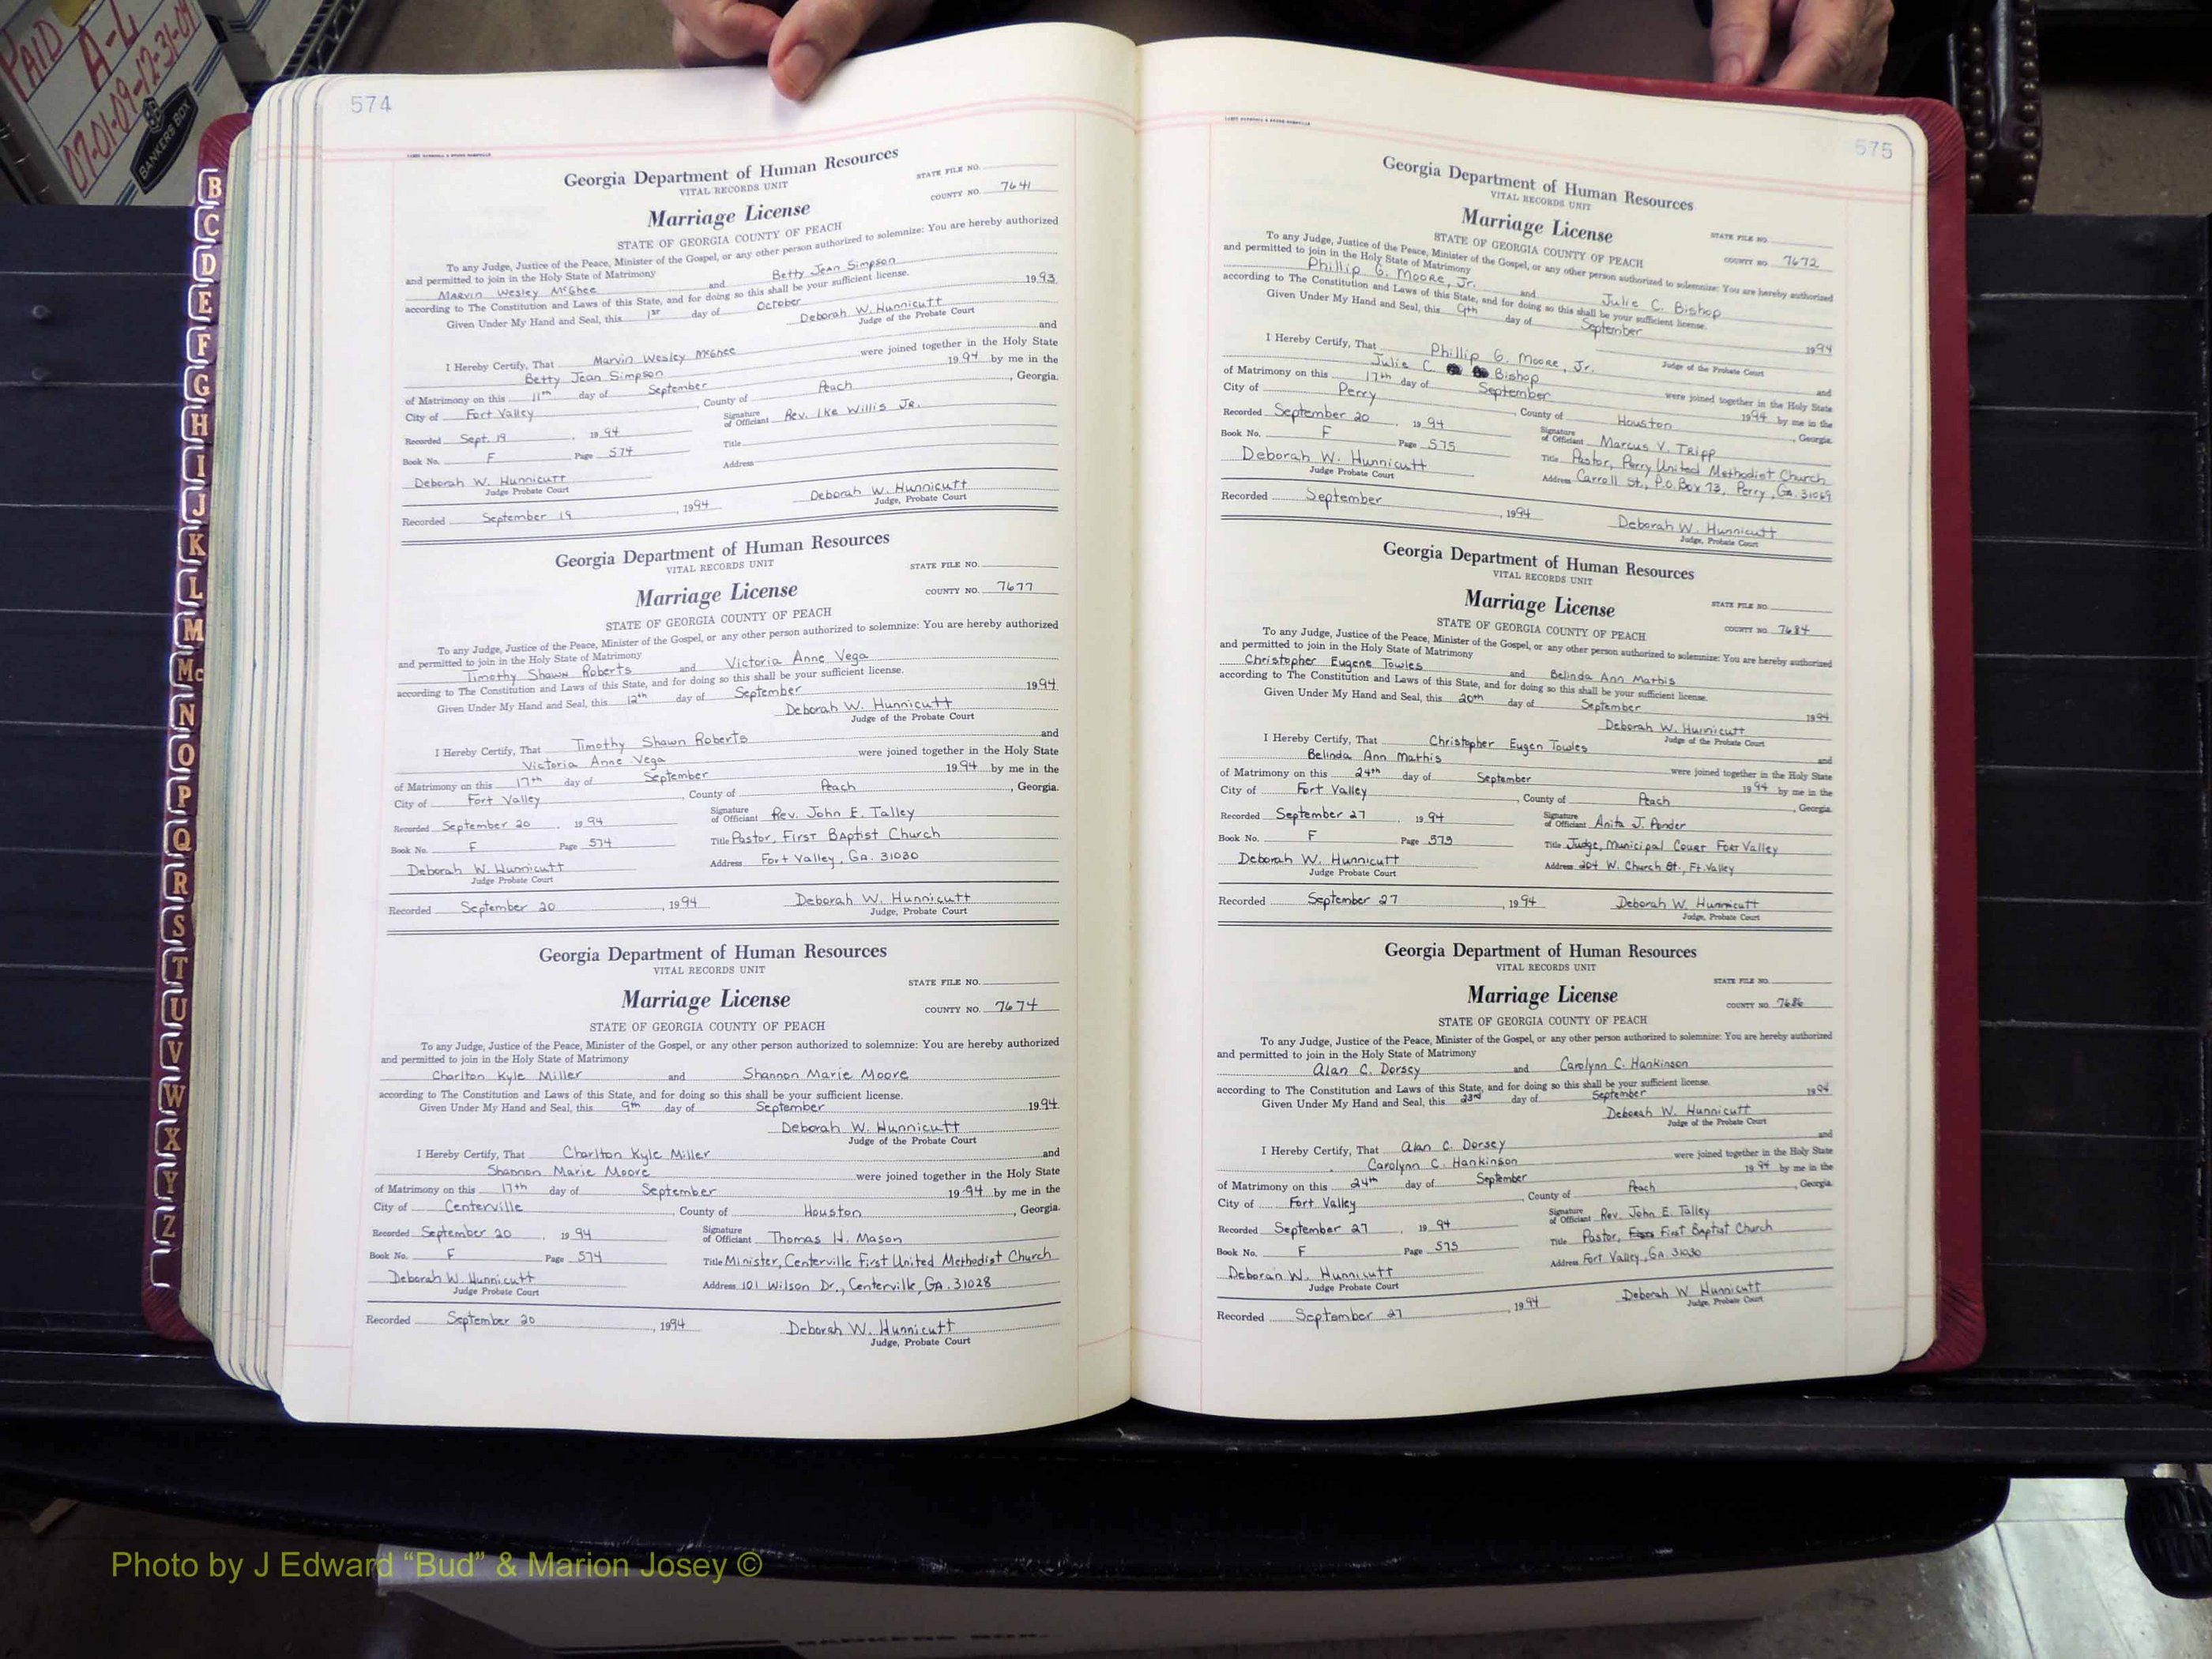 PAID
A-L
07-01-09-12-31-09
BANKERS BOX
B
C
D
E
F
G
H
I
J
K
L
M
Mc
N
O
P
Q
R
S
T
U
V
W
X
Y
Z
574
Georgia Department of Human Resources
VITAL RECORDS UNIT
STATE FILE NO.
COUNTY NO. 7641
Marriage License
STATE OF GEORGIA COUNTY OF PEACH
To any Judge, Justice of the Peace, Minister of the Gospel, or any other person authorized to solemnize: You are hereby authorized
and permitted to join in the Holy State of Matrimony
Marvin Wesley McGhee and Betty Jean Simpson
according to The Constitution and Laws of this State, and for doing so this shall be your sufficient license.
Given Under My Hand and Seal, this 1st day of October 1993
Deborah W. Hunnicutt
Judge of the Probate Court
I Hereby Certify, That Marvin Wesley McGhee and
Betty Jean Simpson were joined together in the Holy State
of Matrimony on this 11th day of September 1994 by me in the
City of Fort Valley, County of Peach, Georgia.
Recorded Sept. 19, 1994 Signature of Officiant Rev. Ike Willis Jr.
Book No. F Page 574 Title
Deborah W. Hunnicutt Address
Judge Probate Court
Recorded September 19, 1994 Deborah W. Hunnicutt
Judge, Probate Court
Georgia Department of Human Resources
VITAL RECORDS UNIT
STATE FILE NO.
COUNTY NO. 7677
Marriage License
STATE OF GEORGIA COUNTY OF PEACH
To any Judge, Justice of the Peace, Minister of the Gospel, or any other person authorized to solemnize: You are hereby authorized
and permitted to join in the Holy State of Matrimony
Timothy Shawn Roberts and Victoria Anne Vega
according to The Constitution and Laws of this State, and for doing so this shall be your sufficient license.
Given Under My Hand and Seal, this 12th day of September 1994
Deborah W. Hunnicutt
Judge of the Probate Court
I Hereby Certify, That Timothy Shawn Roberts and
Victoria Anne Vega were joined together in the Holy State
of Matrimony on this 17th day of September 1994 by me in the
City of Fort Valley, County of Peach, Georgia.
Recorded September 20, 1994 Signature of Officiant Rev. John E. Talley
Book No. F Page 574 Title Pastor, First Baptist Church
Deborah W. Hunnicutt Address Fort Valley, GA. 31030
Judge Probate Court
Recorded September 20, 1994 Deborah W. Hunnicutt
Judge, Probate Court
Georgia Department of Human Resources
VITAL RECORDS UNIT
STATE FILE NO.
COUNTY NO. 7674
Marriage License
STATE OF GEORGIA COUNTY OF PEACH
To any Judge, Justice of the Peace, Minister of the Gospel, or any other person authorized to solemnize: You are hereby authorized
and permitted to join in the Holy State of Matrimony
Charlton Kyle Miller and Shannon Marie Moore
according to The Constitution and Laws of this State, and for doing so this shall be your sufficient license.
Given Under My Hand and Seal, this 9th day of September 1994
Deborah W. Hunnicutt
Judge of the Probate Court
I Hereby Certify, That Charlton Kyle Miller and
Shannon Marie Moore were joined together in the Holy State
of Matrimony on this 17th day of September 1994 by me in the
City of Centerville, County of Houston, Georgia.
Recorded September 20, 1994 Signature of Officiant Thomas H. Mason
Book No. F Page 574 Title Minister, Centerville First United Methodist Church
Deborah W. Hunnicutt Address 101 Wilson Dr., Centerville, GA. 31028
Judge Probate Court
Recorded September 20, 1994 Deborah W. Hunnicutt
Judge, Probate Court
575
Georgia Department of Human Resources
VITAL RECORDS UNIT
Marriage License
STATE FILE NO.
STATE OF GEORGIA COUNTY OF PEACH
COUNTY NO. 7672
To any Judge, Justice of the Peace, Minister of the Gospel, or any other person authorized to solemnize: You are hereby authorized
and permitted to join in the Holy State of Matrimony
Phillip G. Moore, Jr. and Julie C. Bishop
according to The Constitution and Laws of this State, and for doing so this shall be your sufficient license.
Given Under My Hand and Seal, this 9th day of September 1994
Judge of the Probate Court
I Hereby Certify, That Phillip G. Moore, Jr. and
Julie C. Bishop were joined together in the Holy State
of Matrimony on this 17th day of September 1994 by me in the
City of Perry, County of Houston, Georgia.
Recorded September 20, 1994 Signature of Officiant Marcus V. Tripp
Book No. F Page 575 Title Pastor, Perry United Methodist Church
Deborah W. Hunnicutt Address Carroll St., P.O. Box 73, Perry, Ga. 31069
Judge Probate Court
Recorded September, 1994 Deborah W. Hunnicutt
Judge, Probate Court
Georgia Department of Human Resources
VITAL RECORDS UNIT
Marriage License
STATE FILE NO.
STATE OF GEORGIA COUNTY OF PEACH
COUNTY NO. 7684
To any Judge, Justice of the Peace, Minister of the Gospel, or any other person authorized to solemnize: You are hereby authorized
and permitted to join in the Holy State of Matrimony
Christopher Eugene Towles and Belinda Ann Mathis
according to The Constitution and Laws of this State, and for doing so this shall be your sufficient license.
Given Under My Hand and Seal, this 20th day of September 1994
Deborah W. Hunnicutt
Judge of the Probate Court
I Hereby Certify, That Christopher Eugen Towles and
Belinda Ann Mathis were joined together in the Holy State
of Matrimony on this 24th day of September 1994 by me in the
City of Fort Valley, County of Peach, Georgia.
Recorded September 27, 1994 Signature of Officiant Anita J. Ponder
Book No. F Page 575 Title Judge, Municipal Court Fort Valley
Deborah W. Hunnicutt Address 204 W. Church St., Ft. Valley
Judge Probate Court
Recorded September 27, 1994 Deborah W. Hunnicutt
Judge, Probate Court
Georgia Department of Human Resources
VITAL RECORDS UNIT
STATE FILE NO.
Marriage License
COUNTY NO. 7686
STATE OF GEORGIA COUNTY OF PEACH
To any Judge, Justice of the Peace, Minister of the Gospel, or any other person authorized to solemnize: You are hereby authorized
and permitted to join in the Holy State of Matrimony
Alan C. Dorsey and Carolynn C. Hankinson
according to The Constitution and Laws of this State, and for doing so this shall be your sufficient license.
Given Under My Hand and Seal, this 23rd day of September 1994
Deborah W. Hunnicutt
Judge of the Probate Court
I Hereby Certify, That Alan C. Dorsey and
Carolynn C. Hankinson were joined together in the Holy State
of Matrimony on this 24th day of September 1994 by me in the
City of Fort Valley, County of Peach, Georgia.
Recorded September 27, 1994 Signature of Officiant Rev. John E. Talley
Book No. F Page 575 Title Pastor, First Baptist Church
Deborah W. Hunnicutt Address Fort Valley, GA. 31030
Judge Probate Court
Recorded September 27, 1994 Deborah W. Hunnicutt
Judge, Probate Court
Photo by J Edward “Bud” & Marion Josey ©